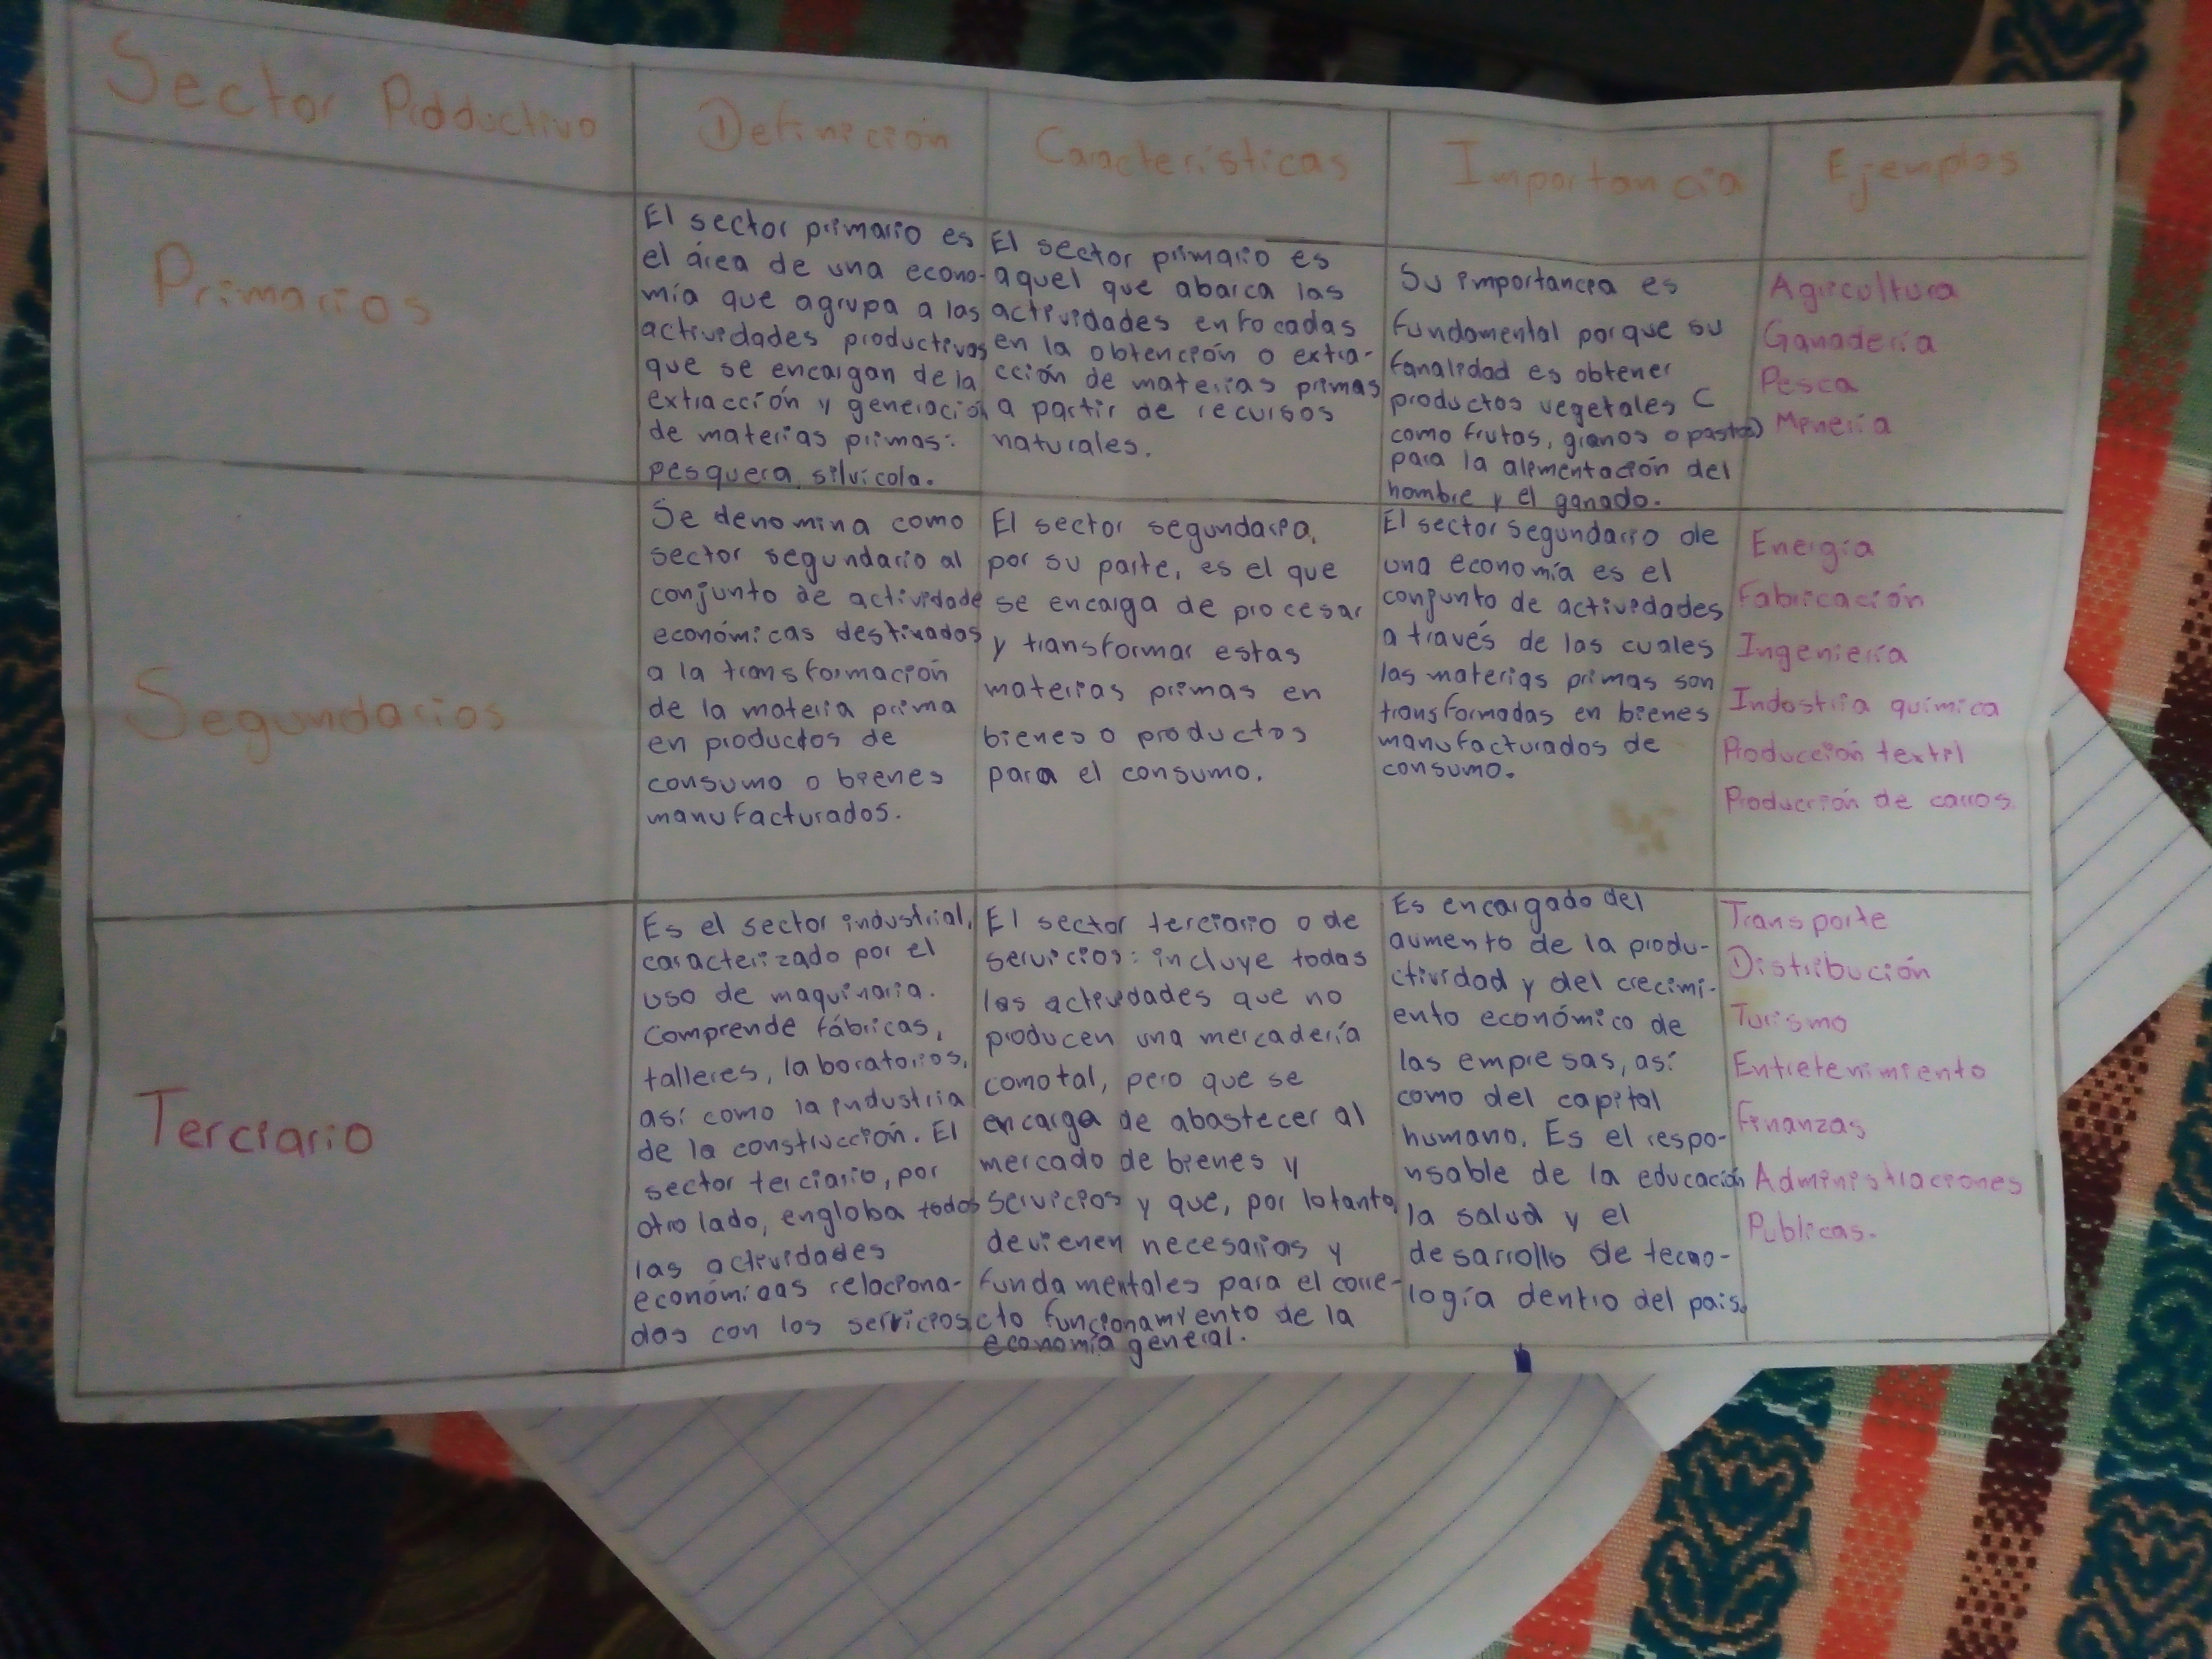 Sector Productivo
Definición
Características
Importancia
Ejemplos
Primarios
El sector primario es
el área de una econo-
mía que agrupa a las
actividades productivas
que se encargan de la
extracción y generación
de materias primas:
pesquera, silvícola.
El sector primario es
aquel que abarca las
actividades enfocadas
en la obtención o extra-
cción de materias primas
a partir de recursos
naturales.
Su importancia es
fundamental porque su
fanalidad es obtener
productos vegetales (
como frutos, granos o pastos)
para la alimentación del
hombre y el ganado.
Agricultura
Ganadería
Pesca
Minería
Segundarios
Se denomina como
sector segundario al
conjunto de actividade
económicas destinados
a la transformación
de la materia prima
en productos de
consumo o bienes
manufacturados.
El sector segundario,
por su parte, es el que
se encarga de procesar
y transformar estas
materias primas en
bienes o productos
para el consumo.
El sector segundario de
una economía es el
conjunto de actividades
a través de las cuales
las materias primas son
transformadas en bienes
manufacturados de
consumo.
Energía
Fabricación
Ingeniería
Industria química
Producción textil
Producción de carros.
Terciario
Es el sector industrial,
caracterizado por el
uso de maquinaria.
Comprende fábricas,
talleres, laboratorios,
así como la industria
de la construcción. El
sector terciario, por
otro lado, engloba todos
las actividades
económicas relaciona-
das con los servicios
El sector terciario o de
servicios: incluye todas
las actividades que no
producen una mercadería
como tal, pero que se
encarga de abastecer al
mercado de bienes y
servicios y que, por lo tanto,
devienen necesarios y
fundamentales para el corre-
cto funcionamiento de la
economía general.
Es encargado del
aumento de la produ-
ctividad y del crecimi-
ento económico de
las empresas, así
como del capital
humano. Es el respo-
nsable de la educación
la salud y el
desarrollo de tecno-
logía dentro del país.
Transporte
Distribución
Turismo
Entretenimiento
Finanzas
Administraciones
Publicas.